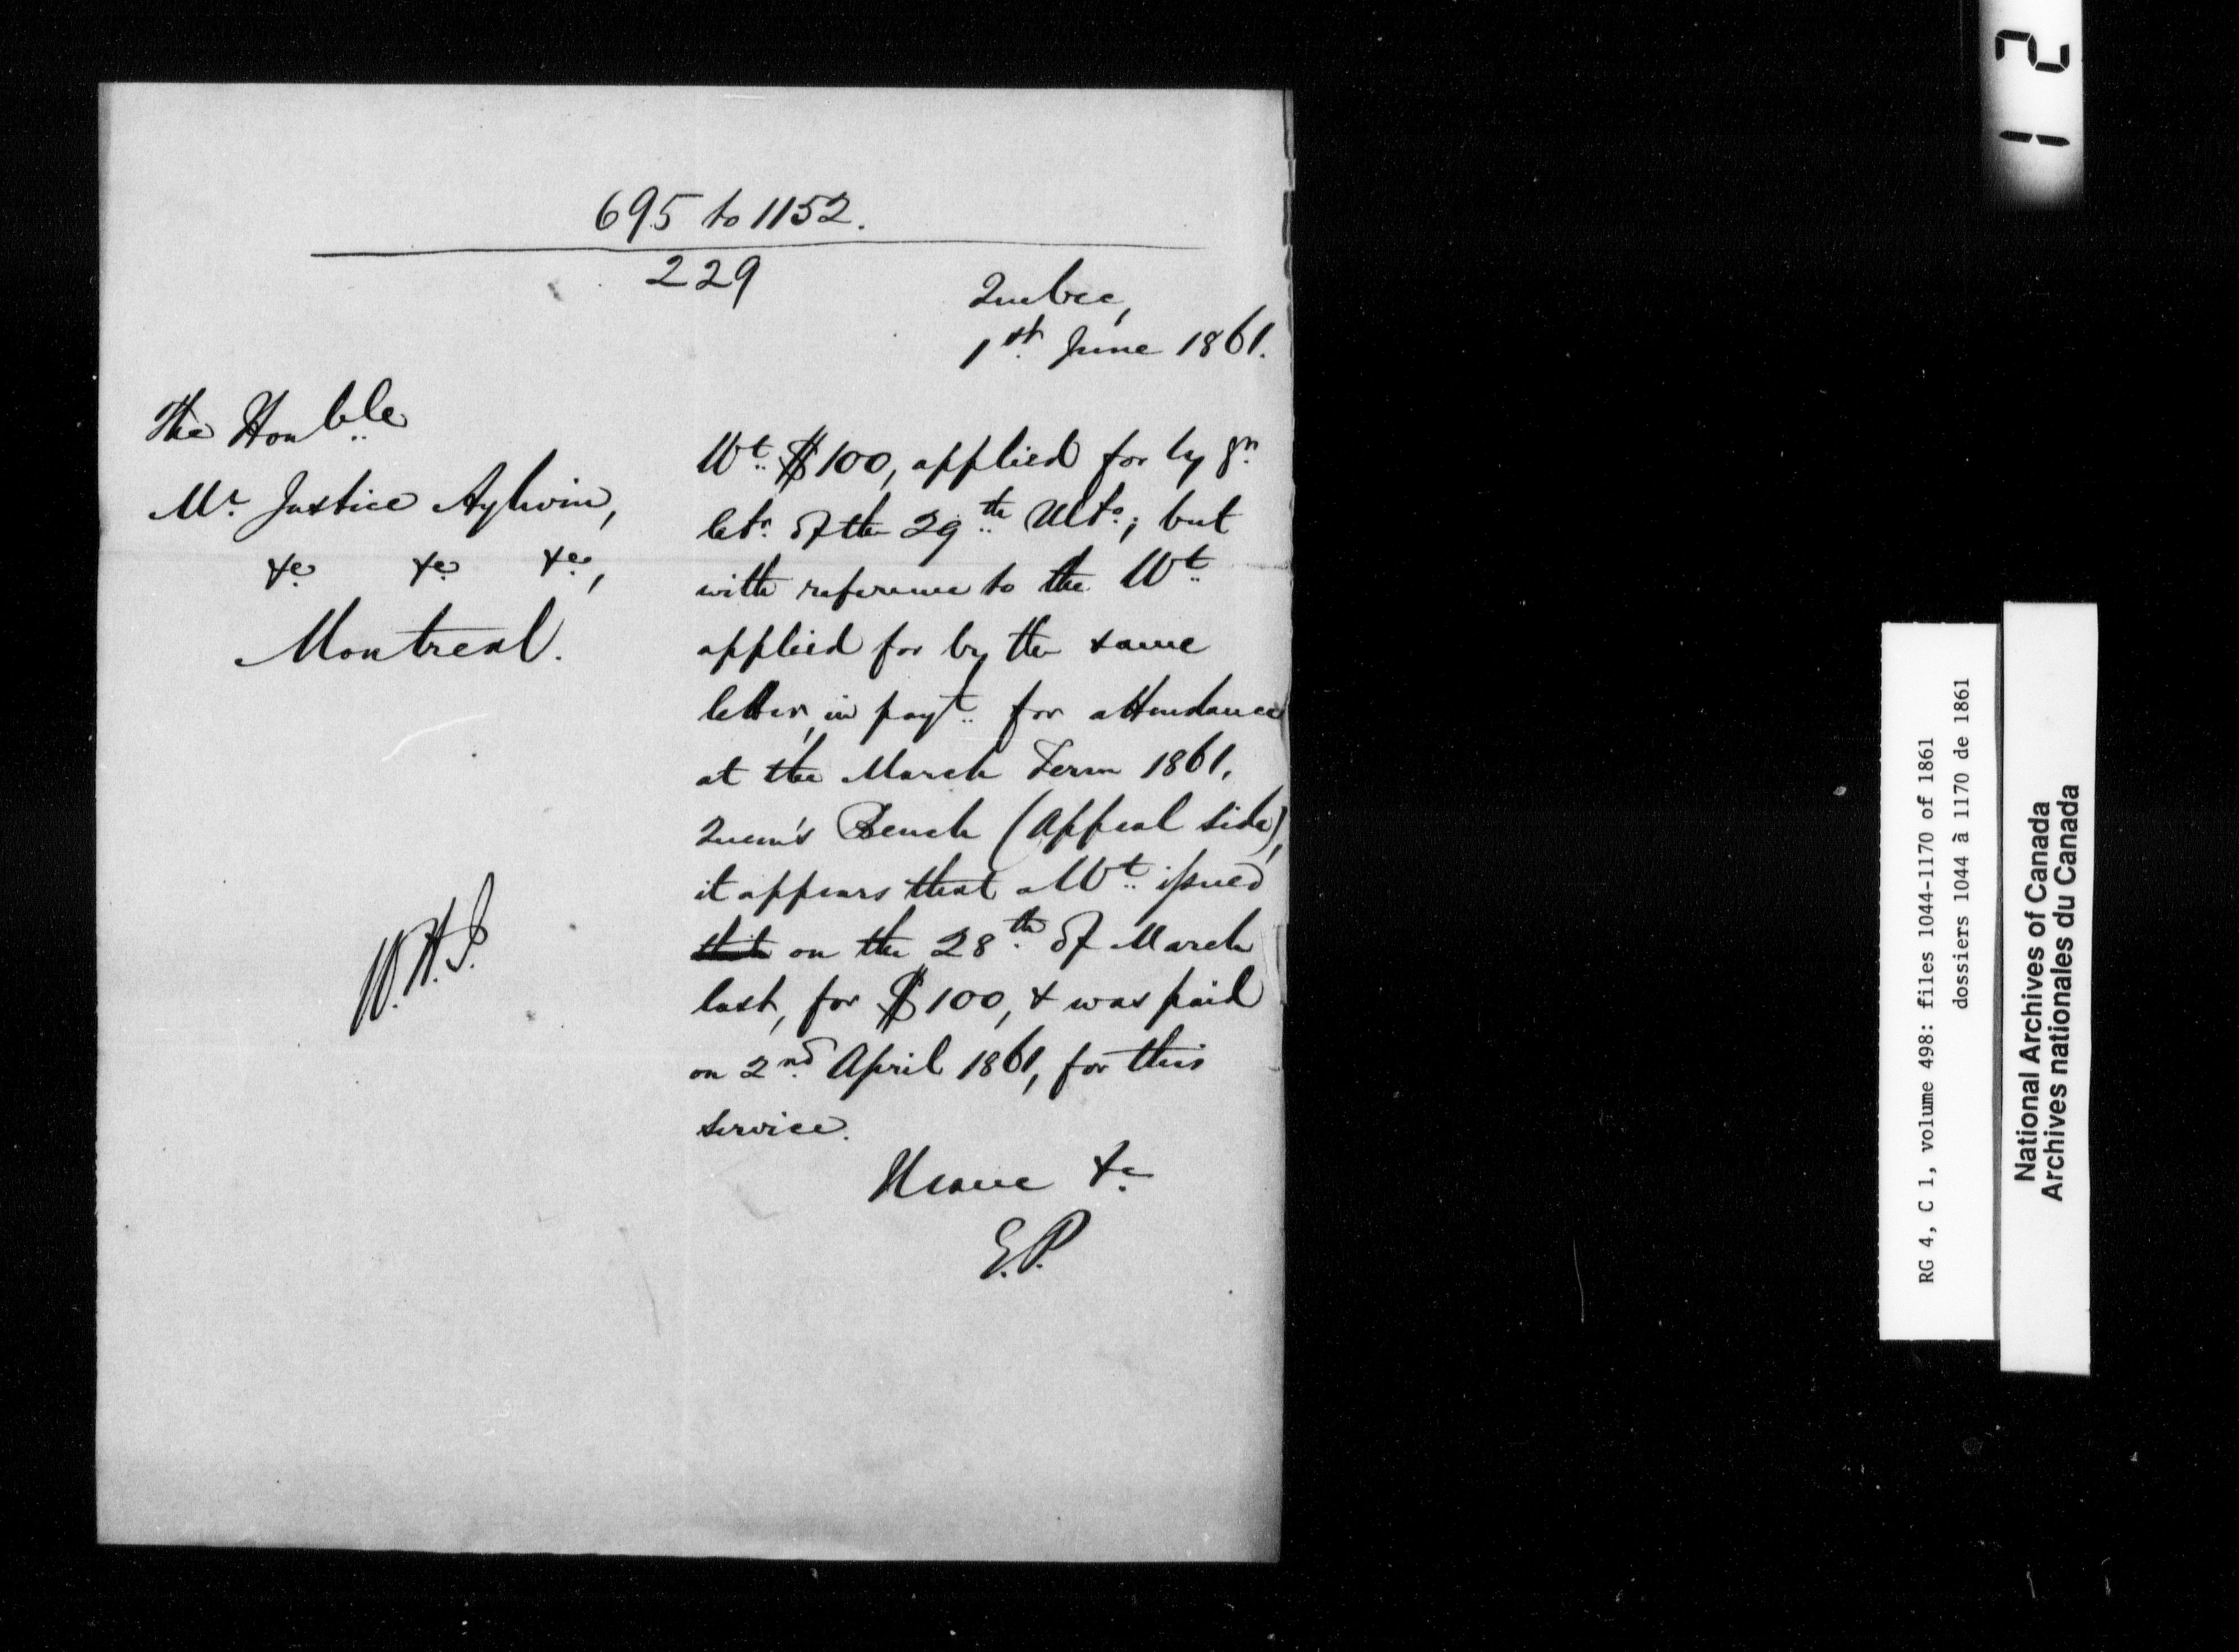 695 to 1152.
229
Quebec,
1st June 1861.
The Honble
Mr Justice Aylwin,
&c &c &c,
Montreal.
Wt $100, applied for by yr
letr of the 29th Ulto; but
with reference to the Wt
applied for by the same
letter, in payt for attendance
at the March Term 1861.
Queen's Bench (Appeal side),
it appears that a Wt issued
on the 28th of March
last, for $100, & was paid
on 2nd April 1861, for this
service.
I have &c
E.P.
W.H.J.
12
RG 4, C 1, volume 498: files 1044-1170 of 1861
dossiers 1044 à 1170 de 1861
National Archives of Canada
Archives nationales du Canada